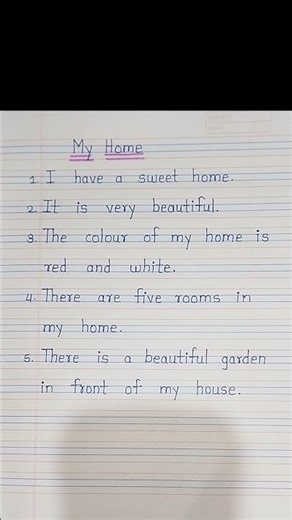 My Home
1. I have a sweet home.
2. It is very beautiful.
3. The colour of my home is
red and white.
4. There are five rooms in
my home.
5. There is a beautiful garden
in front of my house.